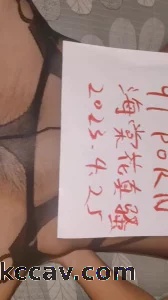 91 PORN
海棠花真骚
2023.4.25
kccav.com